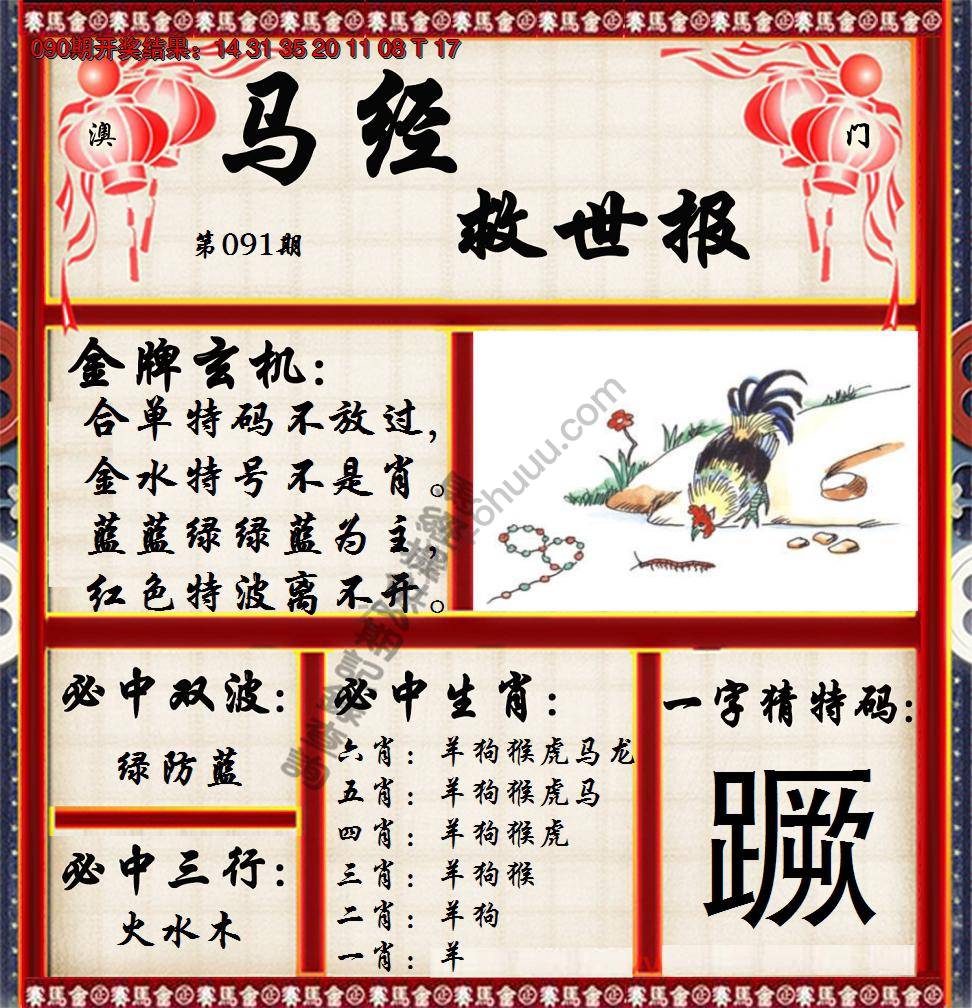 090期开奖结果：14 31 35 20 11 08 T 17
澳
门
马经
救世报
第091期
金牌玄机：
合单特码不放过，
金水特号不是肖。
蓝蓝绿绿蓝为主，
红色特波离不开。
必中双波：
绿防蓝
必中三行：
火水木
必中生肖：
六肖：羊狗猴虎马龙
五肖：羊狗猴虎马
四肖：羊狗猴虎
三肖：羊狗猴
二肖：羊狗
一肖：羊
一字猜特码：
蹶